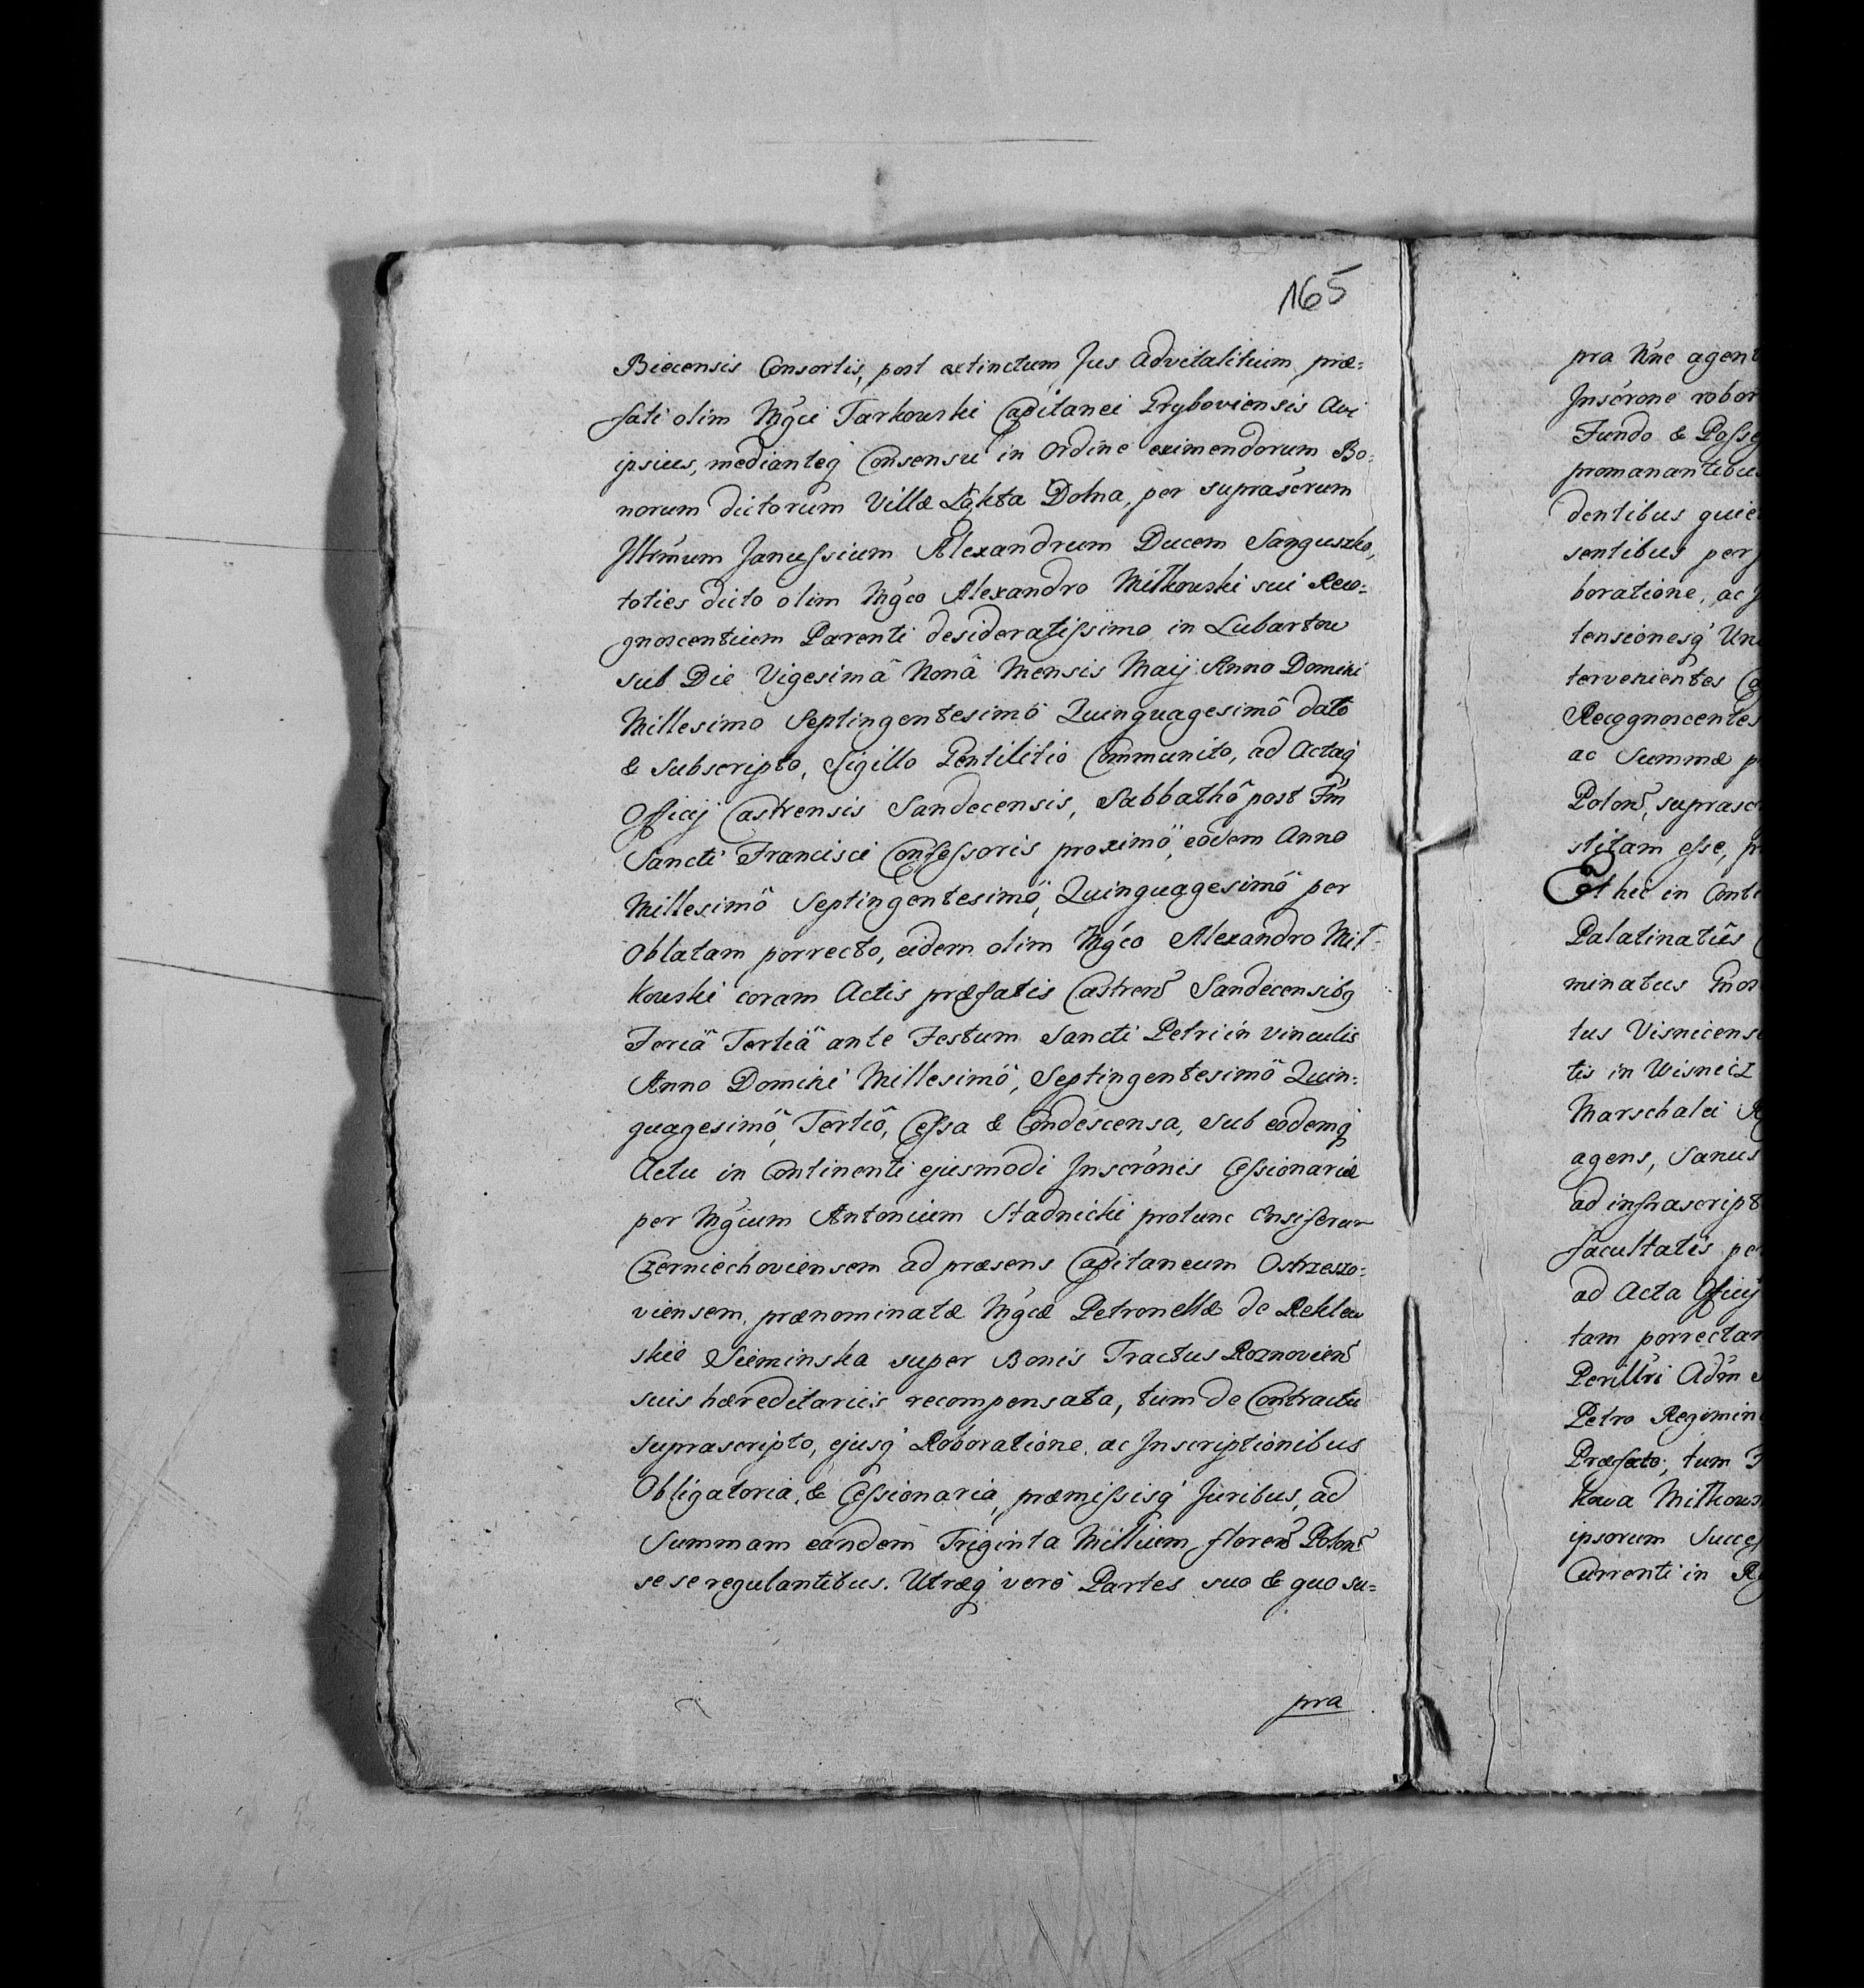 165
Biecensis Consortis, post extinctum Jus Advitalitium præ=
fati olim Mgći Tarkowski Capitanei Gryboviensis Avi
ipsius, medianteq Consensu in Ordine eximendorum Bo=
norum dictorum Villæ Łąkta Dolna, per suprascrum
Jllrmum Janussium Alexandrum Ducem Sanguszko,
toties dicto olim Mgćo Alexandro Mitkowski sui Reco=
gnoscentium Parenti desideratissimo in Lubartow
sub Die Vigesimâ Nonâ Mensis Maij Anno Domini
Millesimo Septingentesimô Quinquagesimô dato
& subscripto, Sigillo Gentilitio Communito, ad Actaq
Officij Castrensis Sandecensis, Sabbathô post Fm
Sancti Francisci Confessoris proximô, eôdem Anno
Millesimô Septingentesimô, Quinquagesimô per
Oblatam porrecto, eidem olim Mgćo Alexandro Mit=
kowski coram Actis præfatis Castren Sandecensibq
Feriâ Tertiâ ante Festum Sancti Petri in vinculis
Anno Domini Millesimô, Septingentesimô Quin=
quagesimô, Tertiô, Cessa & Condescensa, sub eôdemq
Actu in Continenti ejusmodi Jnscrônis Cessionariæ
per Mgćum Antonium Stadnicki protunc Ensiferum
Czerniechoviensem ad præsens Capitaneum Ostrzeszo=
viensem, prænominatæ Mgćæ Petronellæ de Reklew
skie Sieminska super Bonis Tractus Roznovien
suis hæreditariis recompensata, tum de Contractu
suprascripto, ejusq Roboratione, ac Jnscriptionibus
Obligatoria, & Cessionaria, præmissisq Juribus, ad
Summam eandem Triginta Millium floren Polon
se se regulantibus. Utræq verò Partes suo & quo su=
pra
pra Nne agent
Jnscrone robor
Fundo & Posse
promanantibus
dentibus quie
sentibus per
boratione, ac J
tensionesq Un
tervenientes
Recognoscentes
ac Summæ p
Polon, suprasc
stitam esse, p
Et hic in Conti
Palatinatûs
minatus Gnos
tus Visnicens
tis in Wisnicz
Marschalci
agens, Sanus
ad infrascript
facultatis pe
ad Acta Officij
tam porrectam
Perillri Adm
Petro Regimin
Præfecto, tum
kowa Mitkows
ipsorum Succes
Currenti in R